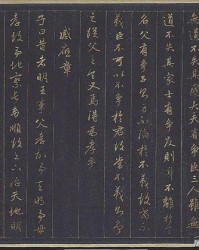 無道不失其國大夫有爭臣三人雖無
道不失其家士有爭友則身不離於
名父有爭子則身不陷於不義故當不
義臣不可以不爭於君故當不義則爭
之從父之令又焉得為孝乎
感應章
子曰昔者明王事父孝故事天明事母
孝故事地察長幼順故上下治天地明